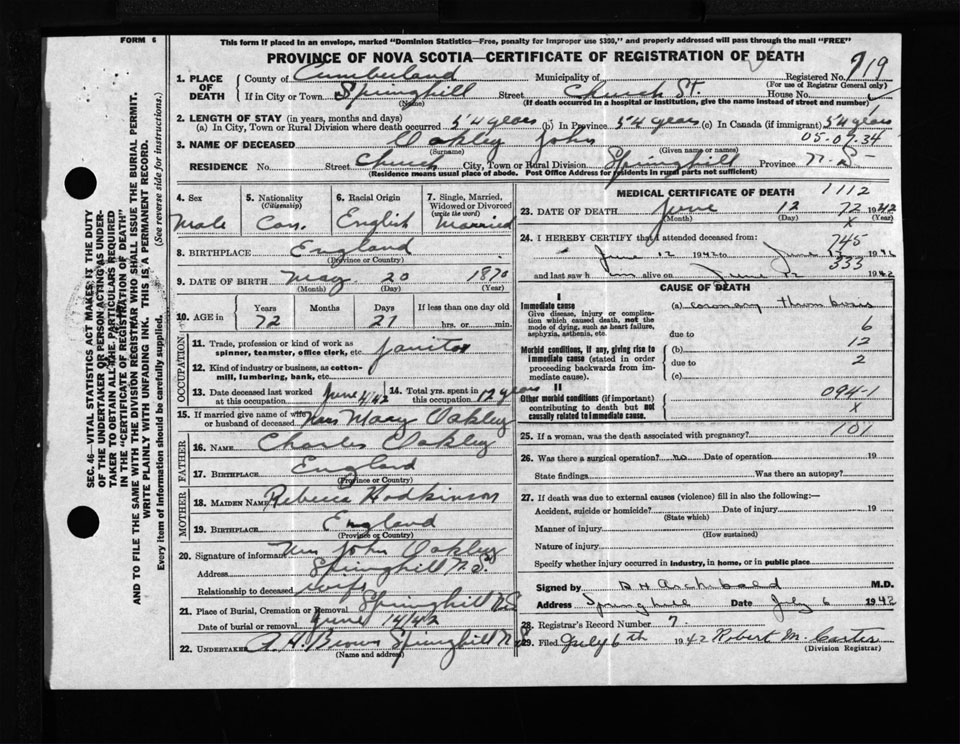 FORM 6
This form if placed in an envelope, marked "Dominion Statistics—Free, penalty for improper use $300," and properly addressed will pass through the mail "FREE"
PROVINCE OF NOVA SCOTIA—CERTIFICATE OF REGISTRATION OF DEATH
SEC. 46—VITAL STATISTICS ACT MAKES IT THE DUTY
OF THE UNDERTAKER OR PERSON ACTING AS UNDER-
TAKER TO OBTAIN ALL THE PARTICULARS REQUIRED
IN THE "CERTIFICATE OF REGISTRATION OF DEATH"
AND TO FILE THE SAME WITH THE DIVISION REGISTRAR WHO SHALL ISSUE THE BURIAL PERMIT.
WRITE PLAINLY WITH UNFADING INK. THIS IS A PERMANENT RECORD.
Every item of information should be carefully supplied. (See reverse side for instructions.)
1. PLACE OF DEATH County of Cumberland Municipality of Registered No. 919
(For use of Registrar General only)
If in City or Town Springhill Street Church St. House No.
(Name) (If death occurred in a hospital or institution, give the name instead of street and number)
2. LENGTH OF STAY (in years, months and days)
(a) In City, Town or Rural Division where death occurred 54 years (b) In Province 54 years (c) In Canada (if immigrant) 54 years
05-09-34
3. NAME OF DECEASED Oakley John
(Surname) (Given name or names)
RESIDENCE No. Street Church City, Town or Rural Division Springhill Province N.S.
(Residence means usual place of abode. Post Office Address for residents in rural parts not sufficient)
4. Sex Male
5. Nationality (Citizenship) Can.
6. Racial Origin English
7. Single, Married, Widowed or Divorced (write the word) Married
8. BIRTHPLACE England
(Province or Country)
9. DATE OF BIRTH May 20 1870
(Month) (Day) (Year)
10. AGE in Years 72 Months Days 21 If less than one day old hrs. or min.
OCCUPATION
11. Trade, profession or kind of work as spinner, teamster, office clerk, etc. Janitor
12. Kind of industry or business, as cotton-mill, lumbering, bank, etc.
13. Date deceased last worked at this occupation June 4/42
14. Total yrs. spent in this occupation 12 years
15. If married give name of wife or husband of deceased Mrs Mary Oakley
FATHER
16. Name Charles Oakley
17. Birthplace England
(Province or Country)
MOTHER
18. Maiden Name Rebecca Hodkinson
19. Birthplace England
(Province or Country)
20. Signature of informant Mrs John Oakley
Address Springhill N.S.
Relationship to deceased wife
21. Place of Burial, Cremation or Removal Springhill N.S.
Date of burial or removal June 14/42
22. Undertaker A. H. Brown Springhill N.S.
(Name and address)
MEDICAL CERTIFICATE OF DEATH 1112
23. DATE OF DEATH June 12 72 1942
(Month) (Day) (Year)
X
24. I HEREBY CERTIFY that I attended deceased from:
745
June 12 1942 to June 1942
333
and last saw him alive on June 12 1942
CAUSE OF DEATH
I
Immediate cause
Give disease, injury or complication which caused death, not the mode of dying, such as heart failure, asphyxia, asthenia, etc.
(a) coronary thrombosis
due to 6
Morbid conditions, if any, giving rise to immediate cause (stated in order proceeding backwards from immediate cause).
(b) 12
due to 2
(c)
II
Other morbid conditions (if important) contributing to death but not causally related to immediate cause.
094-1
X
25. If a woman, was the death associated with pregnancy? 101
26. Was there a surgical operation? no Date of operation 19
State findings Was there an autopsy?
27. If death was due to external causes (violence) fill in also the following:—
Accident, suicide or homicide? Date of injury 19
(State which)
Manner of injury
(How sustained)
Nature of injury
Specify whether injury occurred in industry, in home, or in public place
Signed by D H Archibald M.D.
Address Springhill Date July 6 1942
28. Registrar's Record Number 7.
29. Filed July 6th 1942 Robert M. Carter
(Division Registrar)